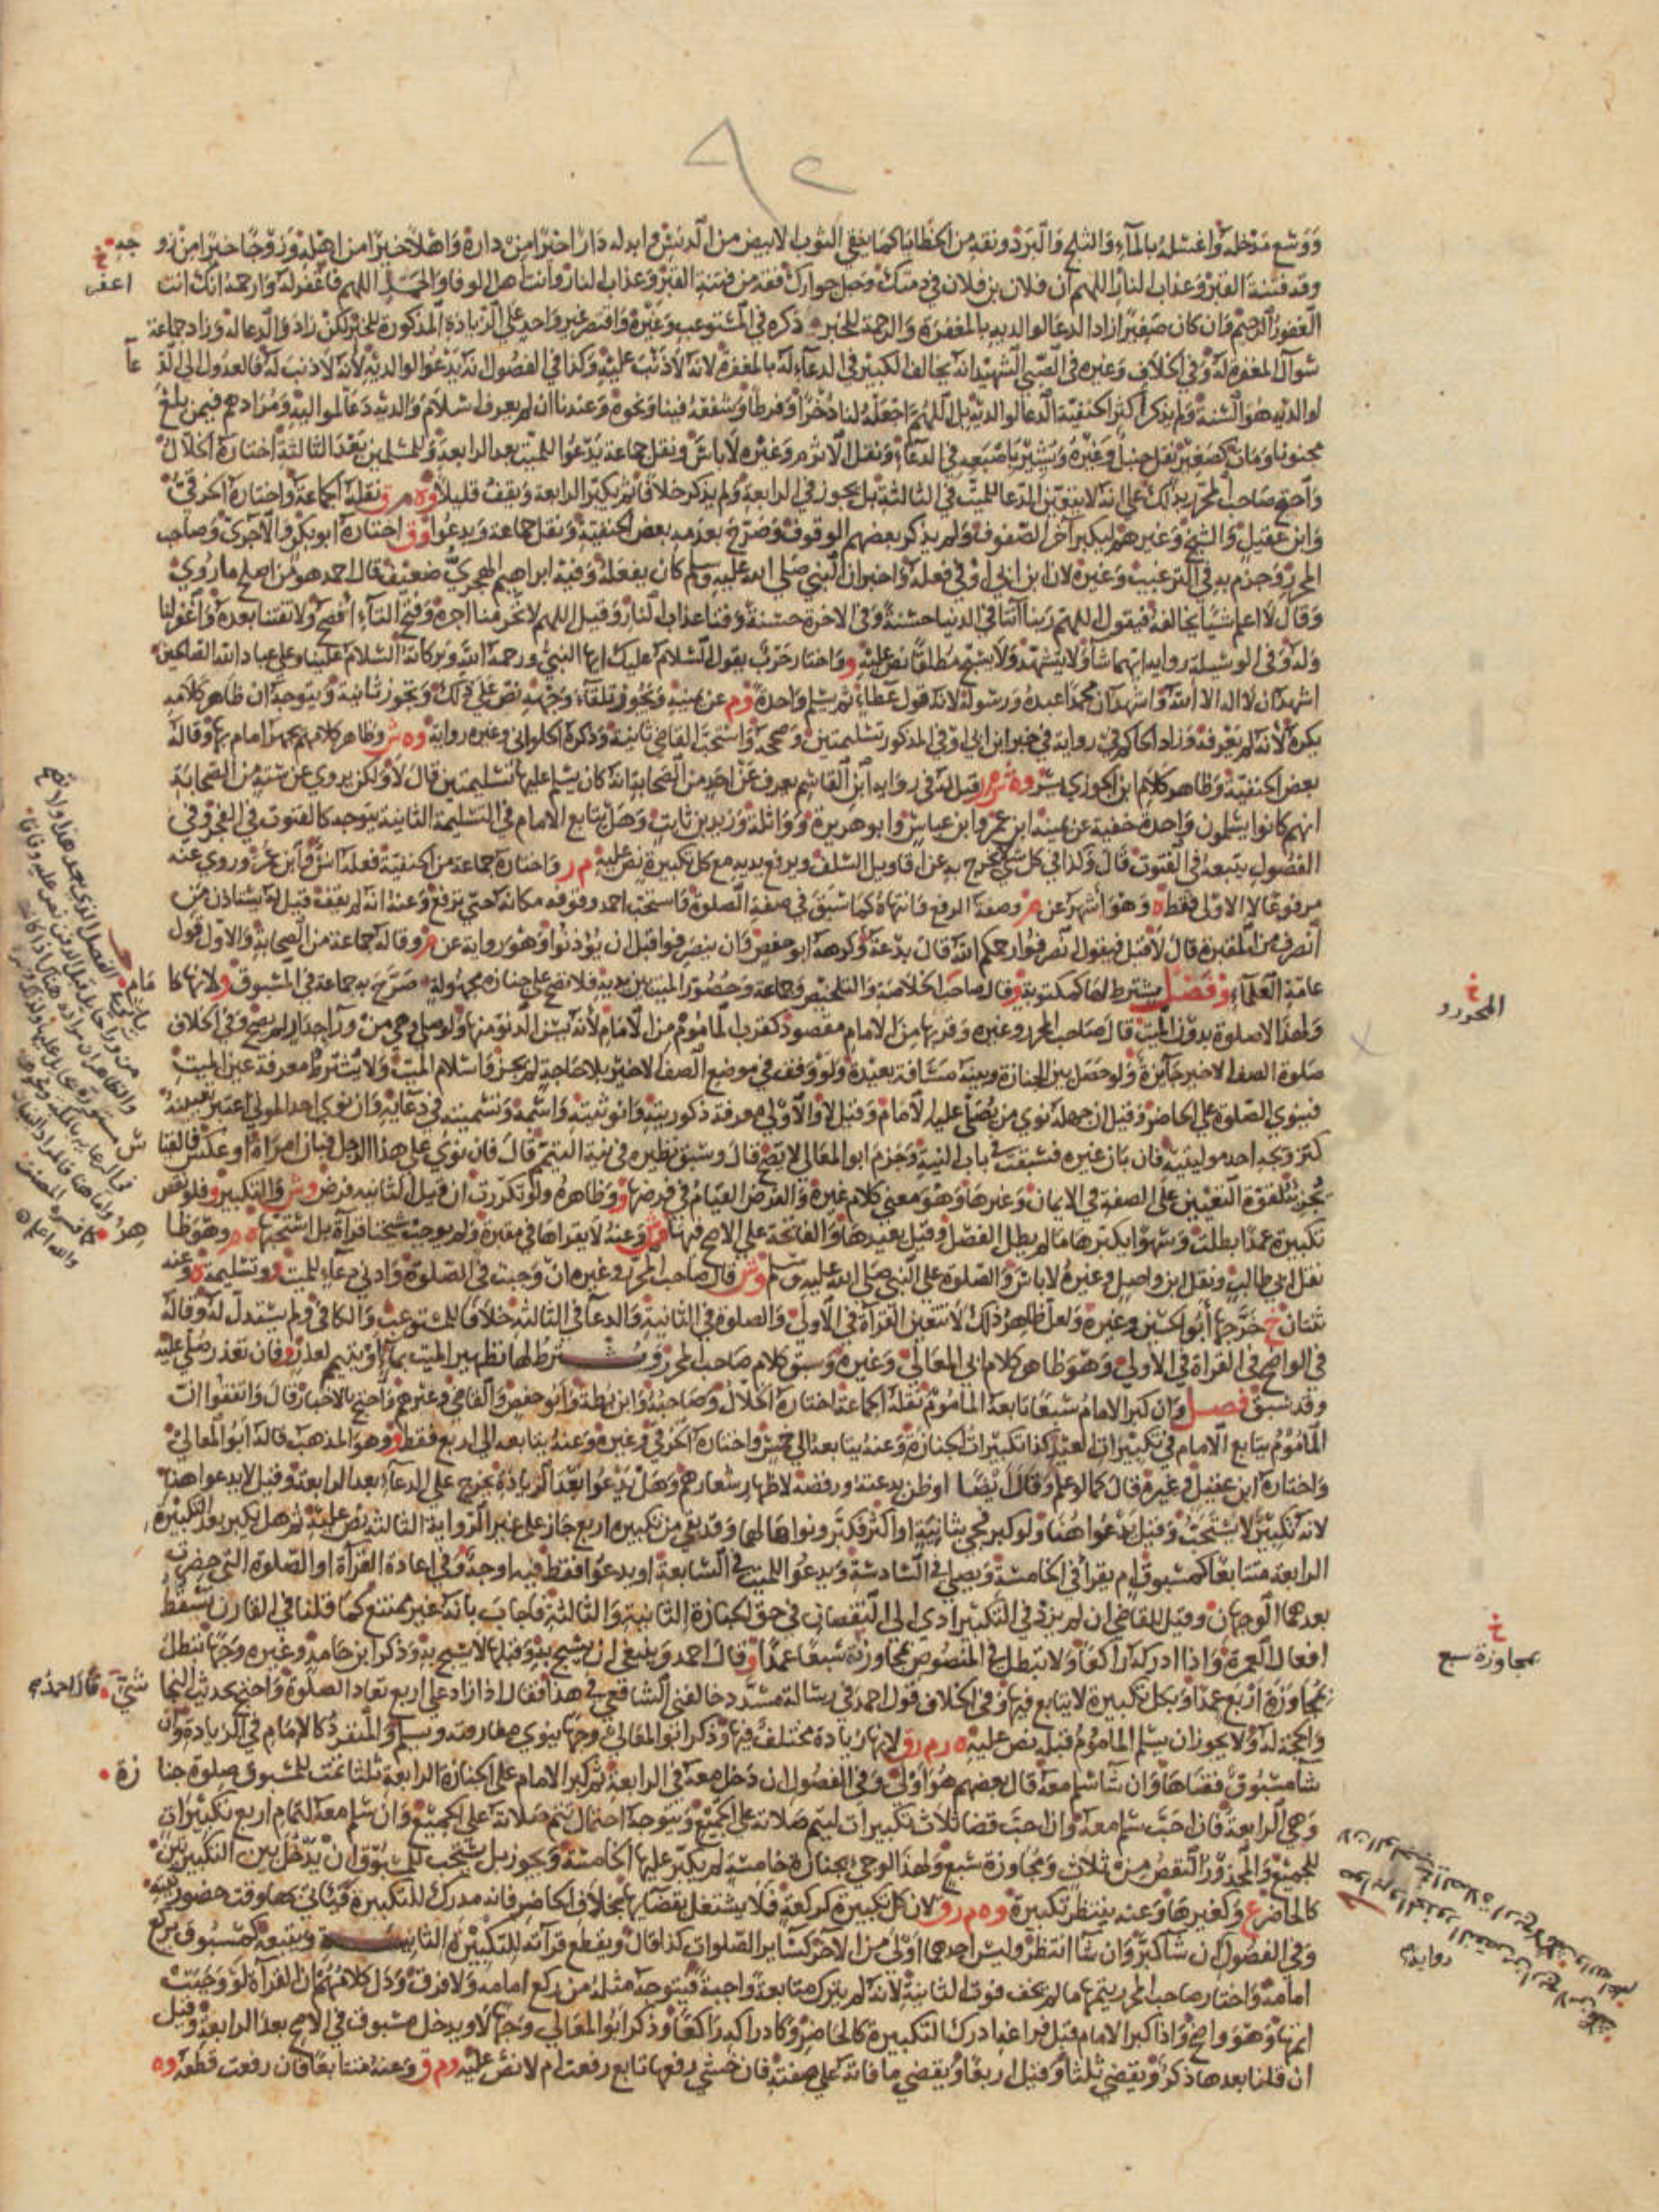 ٩٢
ووسع مدخله واغسله بالماء والثلج والبرد ونقه من الخطايا كما ينقى الثوب الابيض من الدنس وابدله دارا خيرا من داره واهلا خيرا من اهله وزوجا خيرا من زو جه
وقه فتنة القبر وعذاب النار اللهم ان فلان بن فلان في ذمتك وحبل جوارك فقه من فتنة القبر وعذاب النار وانت اهل الوفا والحمد اللهم فاغفر له وارحمه انك انت
الغفور الرحيم وان كان صغيرا زاد الدعا لوالديه بالمغفرة والرحمة للخبر ذكره في المستوعب وغيره واقتصر غير واحد على الزيادة المذكورة للخبر لكن زاد والدعا له وزاد جماعة
سوال المغفرة له وفي الخلاف وغيره في الصبي الشهيد انه يخالف الكبير في الدعاء له بالمغفرة لانه لا ذنب عليه وكذا في الفصول انه يدعو لوالديه لانه لا ذنب له فالعدول الى الد عا
لوالديه هو السنة ولم يذكر اكثر الحنفية الدعا لوالديه بل اللهم اجعله لنا ذخرا وفرطا وشفعه فينا ونحوه وعندنا ان لم يعرف اسلام والديه دعا لمواليه ومرادهم فيمن بلغ
مجنونا ومات كصغير نقل حنبل وغيره ويشير باصبعه في الدعاء ونقل الاثرم وغيره لا باس ونقل جماعة يدعو للميت بعد الرابعة وللمسلمين بعد الثالثة اختاره الخلال
واحتج صاحب المحرر بذلك على انه لا يتعين الدعا للميت في الثالثة بل يجوز في الرابعة ولم يذكر خلافا ثم يكبر الرابعة ويقف قليلا وه م ق نقله الجماعة واختاره الخرقي
وابن عقيل والشيخ وغيرهم ليكبر آخر الصفوف ولم يذكر بعضهم الوقوف وصرح بعدمه بعض الحنفية ونقل جماعة ويدعو وق اختاره ابو بكر والاجري وصاحب
المحرر وجزم به في الترغيب وغيره لان ابن ابي اوفى فعله واخبر ان النبي صلى الله عليه وسلم كان يفعله وفيه ابراهيم الهجري ضعيف قال احمد هو من اصلح ما روي
وقال لا اعلم شيا يخالفه فيقول اللهم ربنا آتنا في الدنيا حسنة وفي الاخرة حسنة وقنا عذاب النار وقيل اللهم لا تحرمنا اجره وفتح التاء افصح ولا تفتنا بعده واغفر لنا
وله وفي الوسيلة رواية ايهما شا ولا يتشهد ولا يسبح مطلقا نص عليه و واختار حرب يقول السلام عليك ايها النبي ورحمة الله وبركاته السلام علينا وعلى عباد الله الصالحين
اشهد ان لا اله الا الله واشهد ان محمدا عبده ورسوله لانه قول عطاء ثم يسلم واحدة وم عن يمينه ويجوز تلقاء وجهه نص على ذلك ويجوز ثانية ويتوجه ان ظاهر كلامه
يكره لانه لم يعرفه وزاد الحاكم في رواية في خبر ابن ابي اوفى المذكور تسليمتين وصححه واستحب القاضي ثانية وذكره الحلواني وغيره رواية وه ش وظاهر كلامهم يجهر امام بها وقاله
بعض الحنفية وظاهر كلام ابن الجوزي يسر وه ش م ر قيل له في رواية ابن القاسم يعرف عن احد من الصحابة انه كان يسلم عليها تسليمتين قال لا ولكن يروي عن ستة من الصحابة
انهم كانوا يسلمون واحدة خفية عن يمينه ابن عمر وابن عباس وابو هريرة وواثلة وزيد بن ثابت وهل يتابع الامام في التسليمة الثانية يتوجه كالقنوت في الفجر وفي
الفصول يتبعه في القنوت قال وكذا في كل شي لا يخرج به عن اقاويل السلف ويرفع يديه مع كل تكبيرة نص عليه م ر واختاره جماعة من الحنفية فعله انس وابن عمر وروي عنه
مرفوعا لا الاولى فقط ه وهو اشهر عن م وصفة الرفع وانتهاه كما سبق في صفة الصلوة واستحب احمد وقوفه مكانه حتى ترفع وعنه انه لم يقف قيل له يستاذن من
انصرف من المقبرة قال لا قيل فيقول انصرفوا رحمكم الله قال بدعة وكرهه ابو حفص فان ينصرفوا قبل ان يوذنوا وهو رواية عن م وقاله جماعة من الصحابة والاول قول
عامة العلماء و فصل يشترط لها كمكتوبة و قال صاحب الخلاصة والتلخيص وجماعة وحضور الميت بين يديه فلا تصح على جنازة محمولة صرح به جماعة في المسبوق ولانها كا مام
ولهذا لا صلوة بدون الميت قال صاحب المحرر وغيره وقربها من الامام مقصود كقرب الماموم من الامام لانه يسن الدنو منها ولو صلى وهي من ورآ جدار لم يصح وفي الخلاف
صلوة الصف الاخير جائزة ولو حصل بين الجنازة وبينه مسافة بعيدة ولو وقف في موضع الصف الاخير بلا حاجة لم يجز واسلام الميت ولا يشترط معرفة عين الميت
فينوي الصلوة على الحاضر وقيل ان جهله نوى من يصلي عليه الامام وقيل لا والاولى معرفة ذكوريته وانوثيته واسمه وتسميته في دعائه وان نوى احد الموتى اعتبر تعيينه
كتزويجه احد موليتيه فان بان غيره فسبقت في باب النية وجزم ابو المعالي لا يصح قال وسبق نظيره في نية التيمم قال فان نوى على هذا الرجل فبان امراة او عكس فالقيا س
يجزيه لقوة التعيين على الصفة في الايمان وغيرها وهو معنى كلام غيره والفرض القيام في فرضها و وظاهره ولو تكررت ان قيل الثانية فرض وش والتكبير و فلو نقص
تكبيرة عمدا بطلت وسهوا يكبرها ما لم يطل الفصل وقيل يعيدها والفاتحة على الاصح فيها وش وعنه لا يقراها في مقبرة ولم يوجب شيخنا قراة بل استحبها ه م وهو ظا هر
نقل ابي طالب ونقل ابن واصل وغيره لا باس والصلوة على النبي صلى الله عليه وسلم وش قال صاحب المحرر وغيره ان وجبت في الصلوة وادنى دعاء للميت و وتسليمة ه وعنه
ثنتان خ خرجها ابو الحسين وغيره ولعل ظاهر ذلك لا تتعين القراة في الاولى والصلوة في الثانية والدعا في الثالثة خلافا للمستوعب والكافي ولم يستدل له وقاله
في الواضح في القراة في الاولى وهو ظاهر كلام ابي المعالي وغيره وسبق كلام صاحب المحرر ويشترط لها تطهير الميت بماء او تيمم لعذر و فان تعذر صلي عليه
وقد سبق فصل وان كبر الامام سبعا تابعه الماموم نقله الجماعة اختاره الخلال وصاحبه وابن بطة وابو حفص والقاضي وغيرهم واحتج بالاخبار قال واتفقوا ان
الماموم يتابع الامام في تكبيرات العيد كذا تكبيرات الجنازة وعنه يتابعه الى خمس واختاره الخرقي وغيره وعنه يتابعه الى اربع فقط و وهو المذهب قاله ابو المعالي
واختاره ابن عقيل وغيره قال كما لو علم وقال ايضا او ظن بدعته ورفضه لاظهار شعارهم وهل يدعو بعد الزيادة يخرج على الدعاء بعد الرابعة وقيل لا يدعو هنا
لانه تكبير لا يستحب وقيل يدعو هنا ولو كبر فجي بثانية او اكثر فكبر ونواها لهما وقد بقي من تكبيره اربع جاز على غير الرواية الثالثة نص عليه ثم هل يكبر بعد التكبيرة
الرابعة متتابعا كمسبوق ام يقرأ في الخامسة ويصلي في السادسة ويدعو للميت في السابعة او يدعو فقط فيه اوجه وفي اعادة القراة او الصلوة التي حضرت
بعدهما الوجهان وقيل للقاضي ان لم يزد في التكبير ادى الى النقصان في حق الجنازة الثانية والثالثة فاجاب بانه غير ممتنع كما قلنا في القارن تسقط
افعال العمرة واذا ادركه راكعا ولا تبطل في المنصوص بمجاوزة سبعا عمدا و قال احمد وينبغي ان يسبح به وقيلها لا يسبح به وذكر ابن حامد وغيره وجها تبطل
بمجاوزة اربع عمدا وبكل تكبيرة لا يتابع فيها وفي الخلاف قول احمد في رسالة مسدد خالفني الشافعي في هذا فقال اذا زاد على اربع تعاد الصلوة واحتج بحديث النجا شي قال احمد
والحجة له ولا يجوز ان يسلم الماموم قبله نص عليه ه ر م ر ق لانها زيادة مختلف فيها وذكر ابو المعالي وجها ينوي مفارقته ويسلم والمنفرد كالامام في الزيادة وان
شا مسبوق قضاها وان شا سلم معه قال بعضهم هو اولى وفي الفصول ان دخل معه في الرابعة ثم كبر الامام على الجنازة الرابعة ثلثا تمت للمسبوق صلوة جنا زة
وهي الرابعة فان احب سلم معه وان احب قضا ثلاث تكبيرات ليتم صلاته على الجميع ويتوجه احتمال تتم صلاته على الجميع وان سلم معه لتمام اربع تكبيرات
للجميع والمحذور النقص من ثلاث ومجاوزة سبع ولهذا لو جيء بجنازة خامسة لم يكبر عليها الخامسة ويجوز بل يستحب للمسبوق ان يدخل بين التكبيرتين
كالحاضر ع وكغيرها وعنه ينتظر تكبيرة وه م ر ق لان كل تكبيرة كركعة فلا يشتغل بقضائها بخلاف الحاضر فانه مدرك للتكبيرة فياتي بها وقت حضور نيته
وفي الفصول ان شا كبر وان شا انتظر وليس احدهما اولى من الاخر كسائر الصلوات كذا قال ويقطع قرآته للتكبيرة الثانية ويتبعه كمسبوق يركع
امامه واختار صاحب المحرر يتمها ما لم يخف فوت الثانية لانه لم يترك متابعة واجبة فيتوجه مثله من ركع امامه ولا فرق ودل كلامهم ان القراة لو وجبت
اتمها وهو واضح واذا كبر الامام قبل فراغها ادرك التكبيرة كالحاضر وكادراكه راكعا وذكر ابو المعالي وجها لا ويدخل مسبوق في الاصح بعد الرابعة وقيل
ان قلنا بعدها ذكر ويقضي ثلثا وقيل اربعا ويقضي ما فاته على صفته فان خشي رفعها تابع رفعت ام لا نص عليه وم ق وعنه متتابعا فان رفعت قطعه وه
خ
المحذور
خ
بمجاوزة سبع
والله اعلم